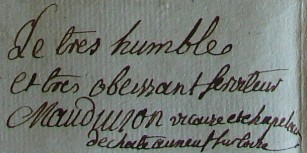 Le tres humble
et tres obeissant serviteur
Mauduison vicaire et chapelain
de chateauneuf sur loire